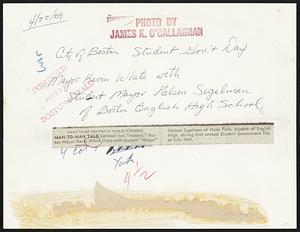 4/22/69
PHOTO BY
JAMES K. O'CALLAGHAN
City of Boston Student Gov't Day
Mayor Kevin White with
Student Mayor Nelson Sigelman
of Boston English High School
MAN-TO-MAN TALK between two "mayors," Bos-
ton Mayor Kevin White chats with student "Mayor"
Nelson Sigelman of Hyde Park, student at English
High, during first annual Student Government Day
at City Hall.
4 col
Youth
9/2